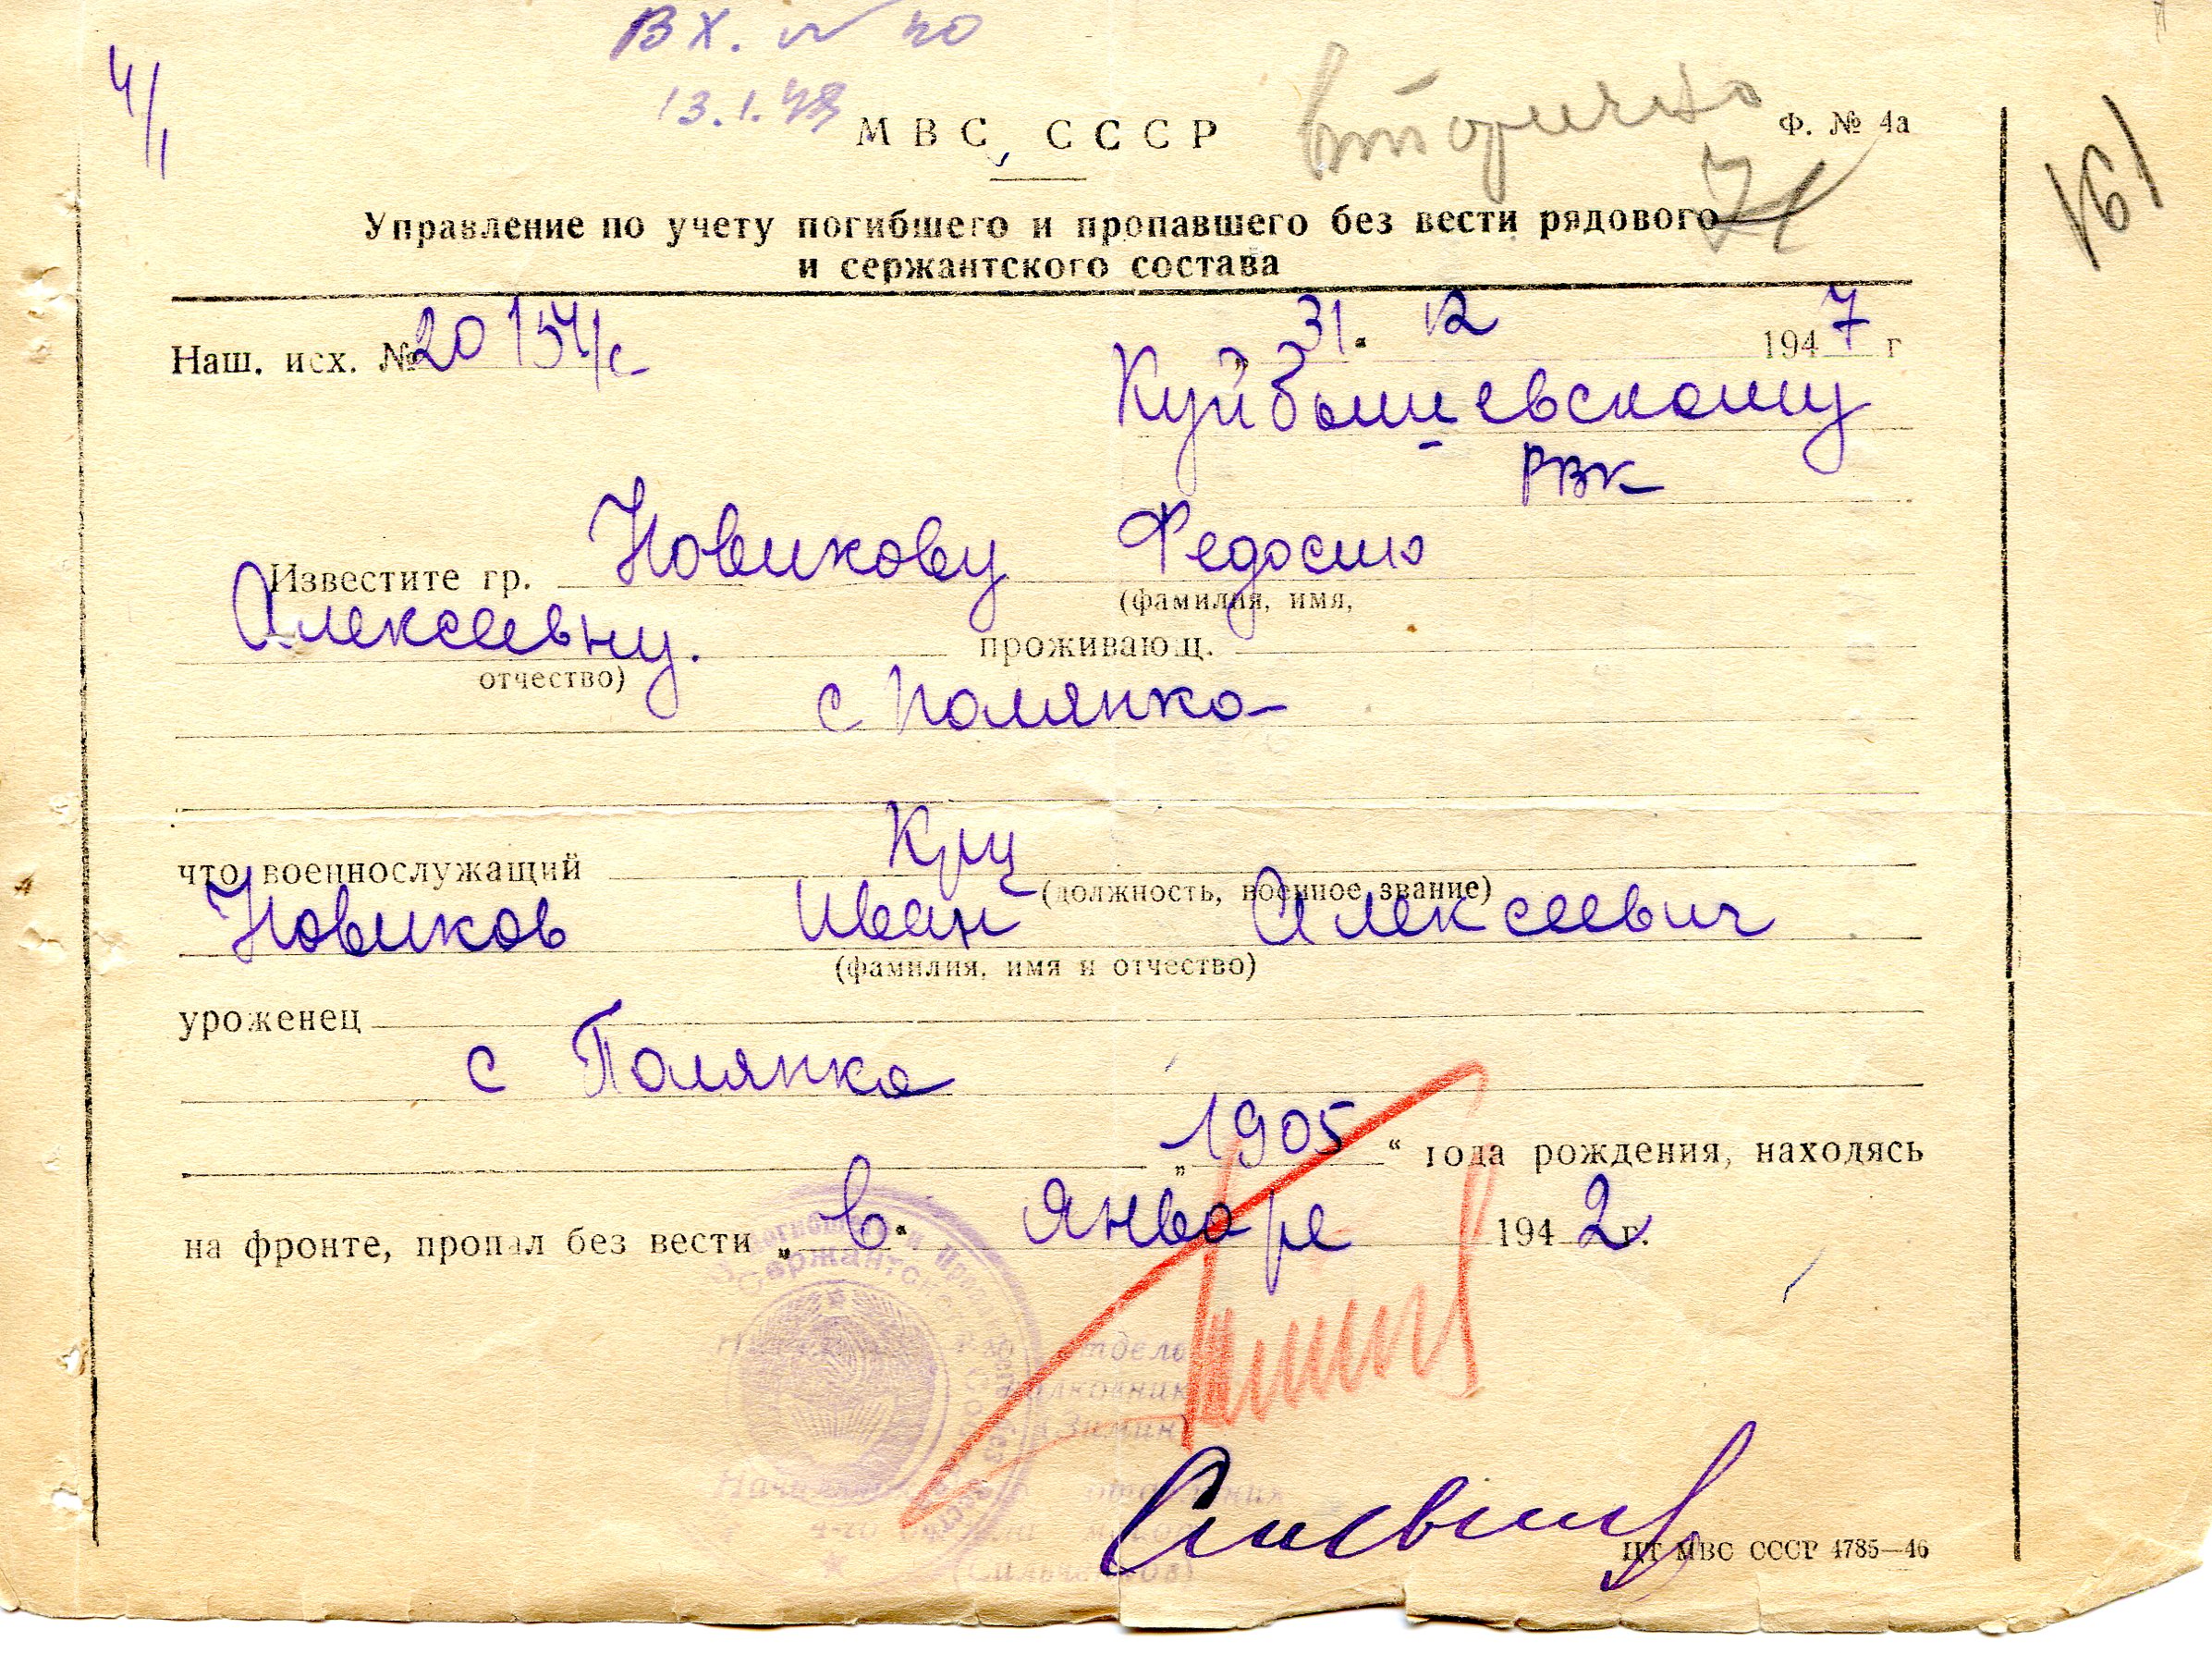 ВХ. № 40
4/1
13.1.48
МВС СССР
вторично
Ф. № 4а
161
Управление по учету погибшего и пропавшего без вести рядового
и сержантского состава
Наш. исх. № 20154/с „31“ 12 1947 г
Куйбышевскому
РВК
Известите гр. Новикову Федосию
(фамилия, имя,
Алексеевну. проживающ.
отчество)
с Полянка
что военнослужащий Кр-ц
(должность, военное звание)
Новиков Иван Алексеевич
(фамилия, имя и отчество)
уроженец
с Полянка
„1905“ года рождения, находясь
на фронте, пропал без вести „в“ январе 1942 г.
отдела
полковник
Зимин)
4-го
ЦТ МВС СССР 4785—46